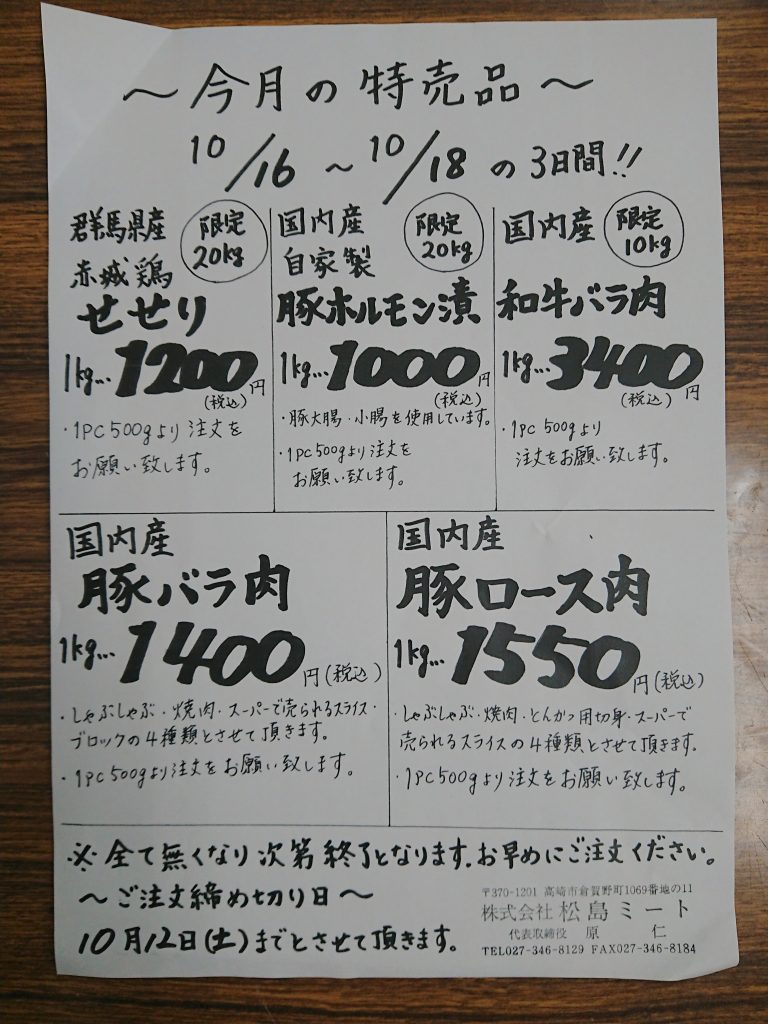 ～今月の特売品～
10/16～10/18の3日間!!
群馬県産
赤城鶏
限定
20kg
せせり
1kg…1200円
(税込)
・1PC500gより注文を
お願い致します。
国内産
自家製
限定
20kg
豚ホルモン漬
1kg…1000円
(税込)
・豚大腸・小腸を使用しています。
・1PC500gより注文を
お願い致します。
国内産
限定
10kg
和牛バラ肉
1kg…3400円
(税込)
・1PC 500gより
注文をお願い致します。
国内産
豚バラ肉
1kg…1400円(税込)
・しゃぶしゃぶ・焼肉・スーパーで売られるスライス・
ブロックの4種類とさせて頂きます。
・1PC500gより注文をお願い致します。
国内産
豚ロース肉
1kg…1550円(税込)
・しゃぶしゃぶ・焼肉・とんかつ用切身・スーパーで
売られるスライスの4種類とさせて頂きます。
・1PC500gより注文をお願い致します。
※全て無くなり次第終了となります。お早めにご注文ください。
～ご注文締め切り日～
10月12日(土)までとさせて頂きます。
〒370-1201 高崎市倉賀野町1069番地の11
株式会社 松島ミート
代表取締役 原 仁
TEL027-346-8129 FAX027-346-8184